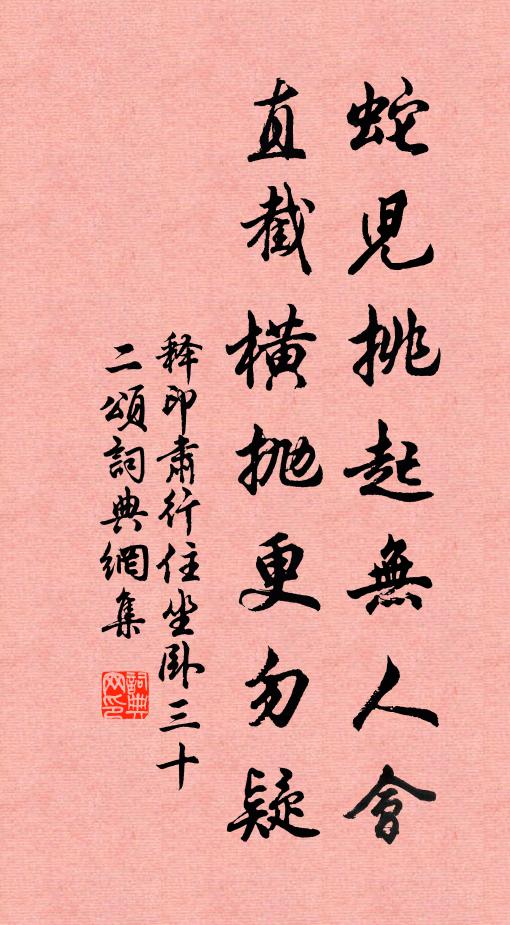 蛇兒挑起無人會
直截橫拋更勿疑
釋印肅行住坐臥三十
二頌詞典網集
詞典網印